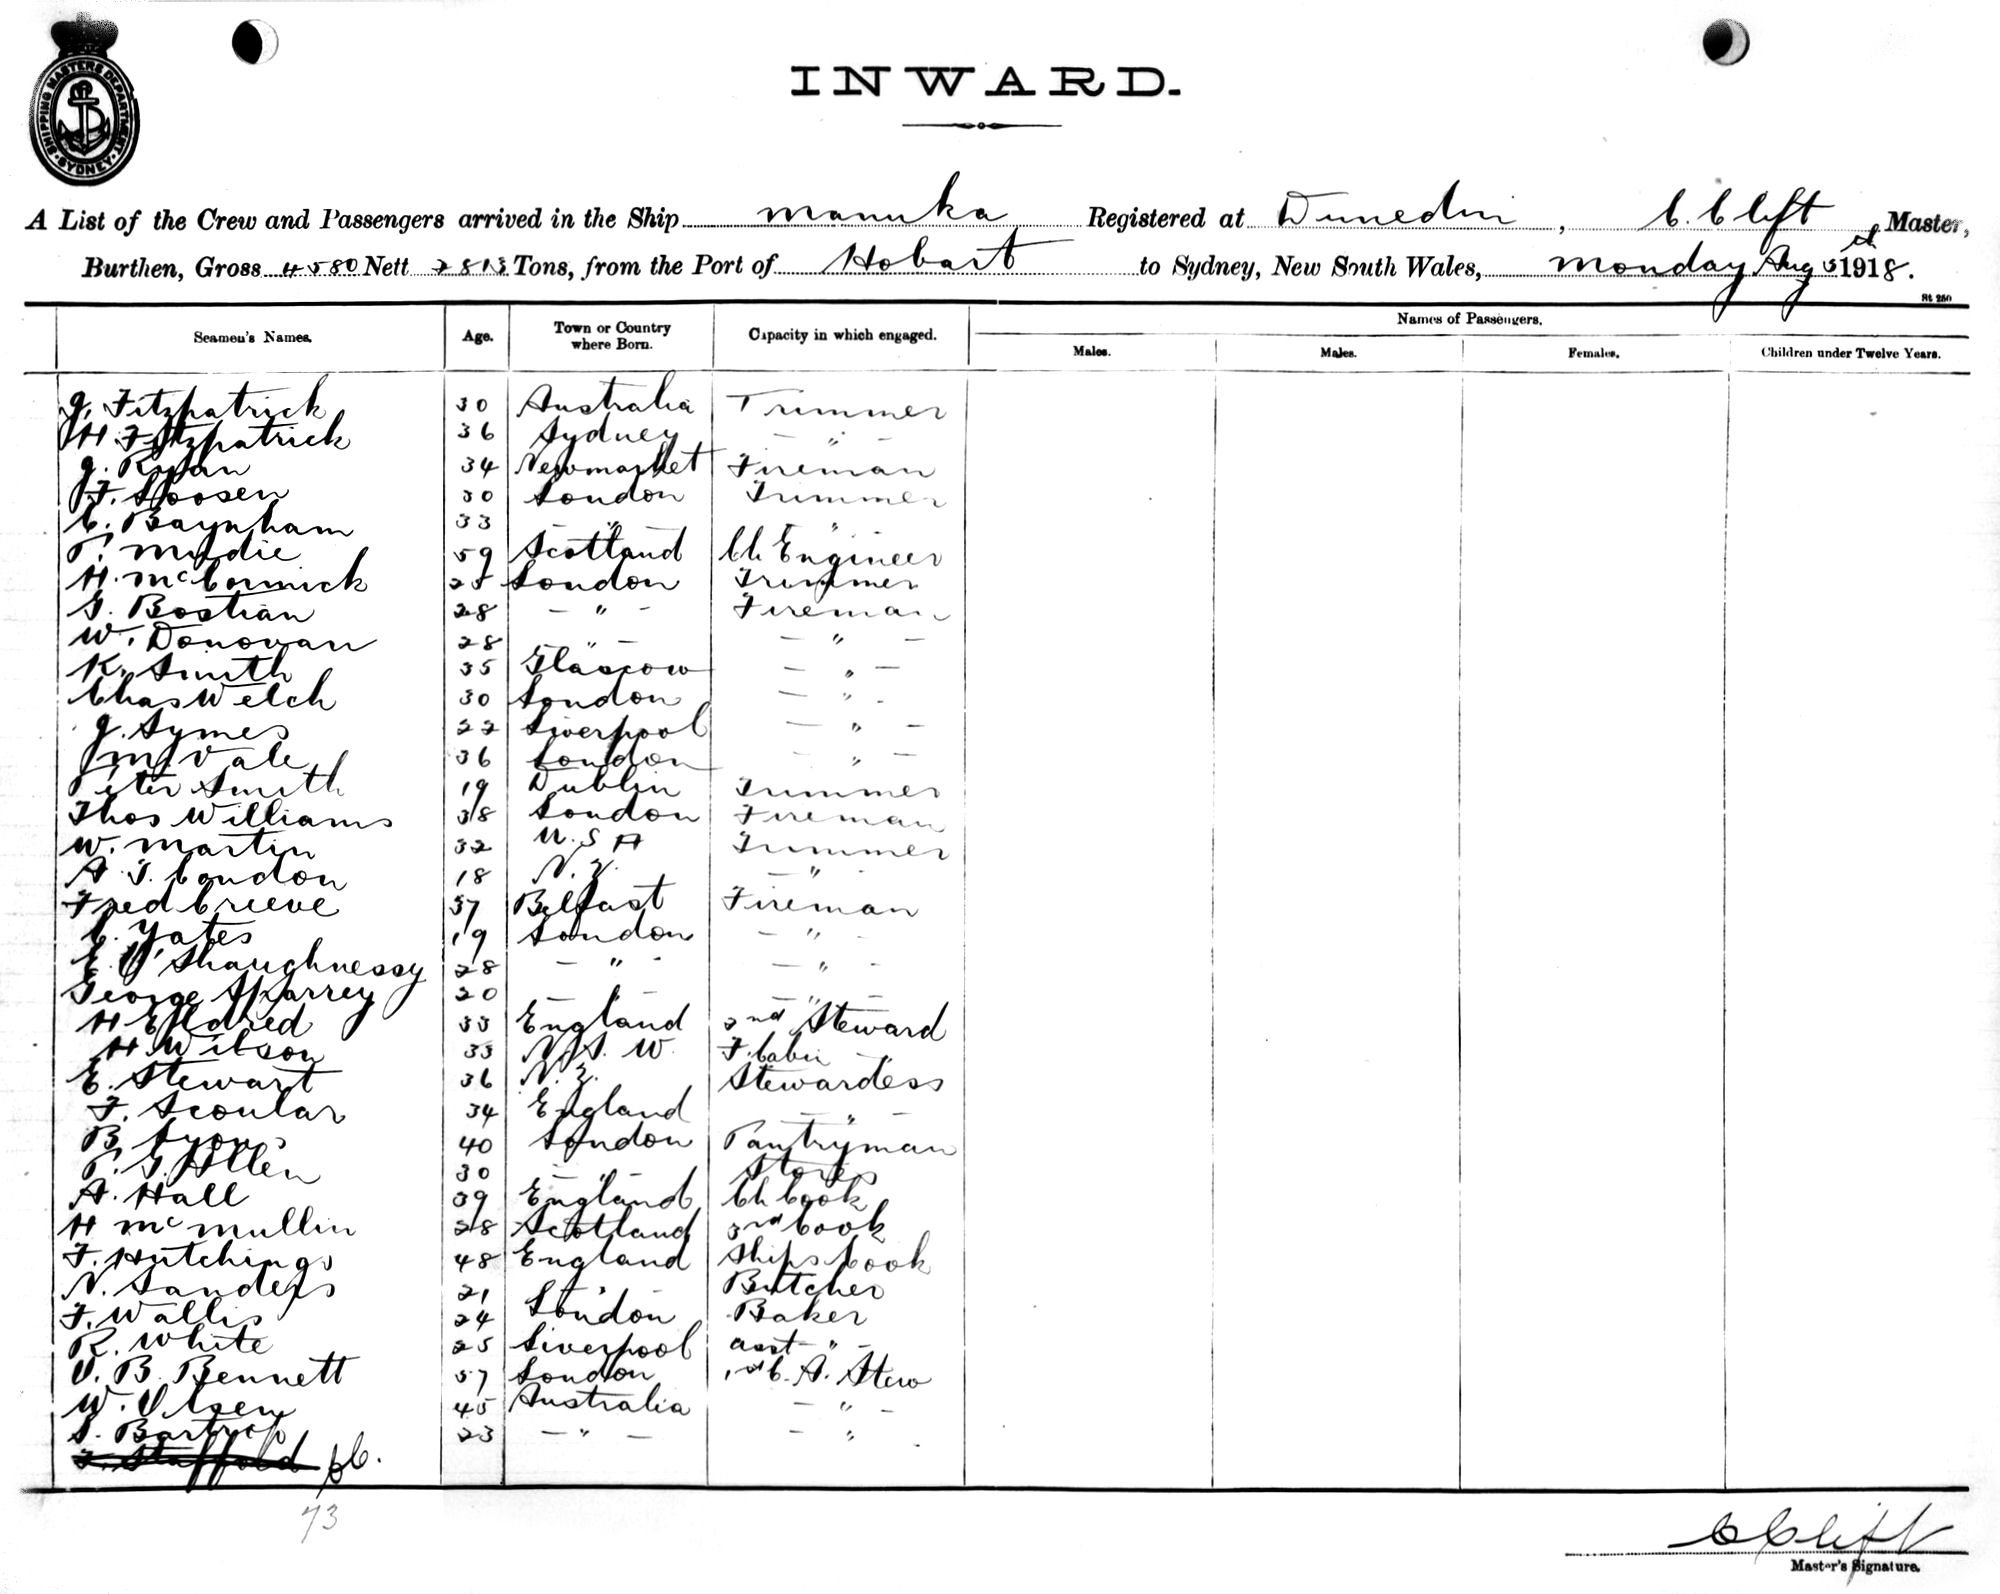 SHIPPING MASTERS DEPARTMENT
SYDNEY
INWARD.
A List of the Crew and Passengers arrived in the Ship Manuka Registered at Dunedin, C. Clift, Master,
Burthen, Gross 4580 Nett Tons, from the Port of Hobart to Sydney, New South Wales, Monday Aug 5 1918.
St 250
Seamen's Names. Age. Town or Country where Born. Capacity in which engaged. Names of Passengers.
Males. Males. Females. Children under Twelve Years.
J. Fitzpatrick 30 Australia Trimmer
H. Fitzpatrick 36 Sydney — " —
J. Ryan 34 Newmarket Fireman
F. 30 London Trimmer
C. Baynham 33 — " — "
P. 59 Scotland Ch Engineer
H. McCormick London Trimmer
G. Bostian 28 — " — Fireman
W. Donovan 28 — " — — " —
K. Smith 35 Glascow — " —
Chas Welch 30 London — " -
J. Symes 22 Liverpool — " —
M. Vale 36 London — " —
Peter Smith 19 Dublin Trimmer
Thos Williams 38 London Fireman
W. Martin 32 U.S.A Trimmer
A. G. Condon 18 N.Z. — "
Fred Creeve 37 Belfast Fireman
C. Yates 19 London — " -
E. O'Shaughnessy 28 — " - — " -
George Sparrey 20 — " - — " -
H Eldred 33 England 2nd Steward
H. Wilson 33 N.S.W. F. Cabin
E. Stewart 36 N.Z. Stewardess
F. Scoular 34 England — " -
B. Lyons 40 London Pantryman
P. G. Allen 30 — " — Stores
A. Hall 39 England Ch Cook
H McMullin 28 Scotland 3rd Cook
F. Hutchings 48 England Ships Cook
N. Sanders 21 " Butcher
F. Wallis 24 London Baker
R. White 25 Liverpool asst " -
V. B. Bennett 57 London A. Stew
W. Olsen 45 Australia — " -
S. 23 — " — — " -
F. Stafford
73
C Clift
Master's Signature.